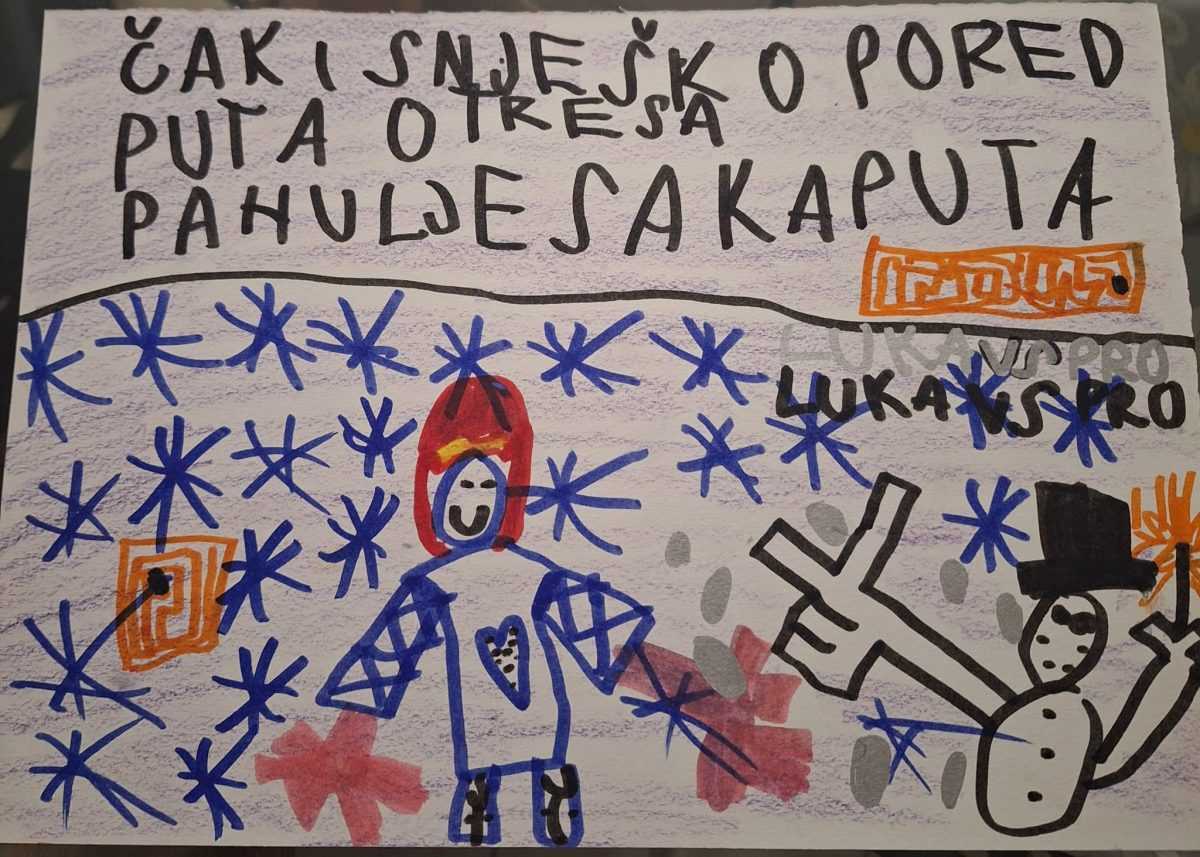 ČAK I SNJEŠKO PORED
PUTA OTRESA
PAHULJE SA KAPUTA
LUKA VS PRO
LUKA VS PRO